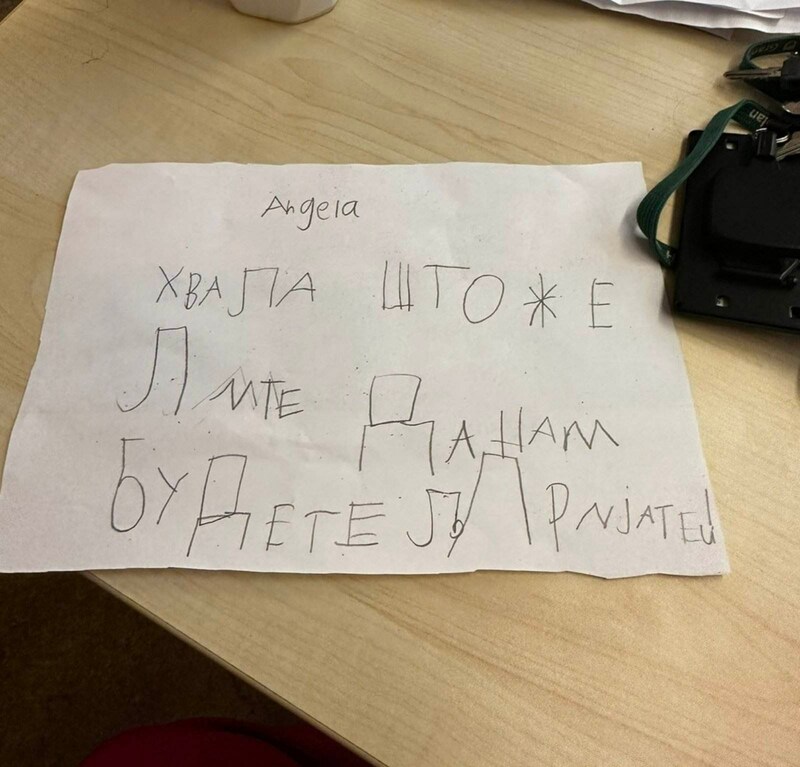 Angela
ХВАЛА ШТОЖЕ
ЛИТЕ ДАНАМ
БУДЕТЕ Љ ПРИЈАТЕ!